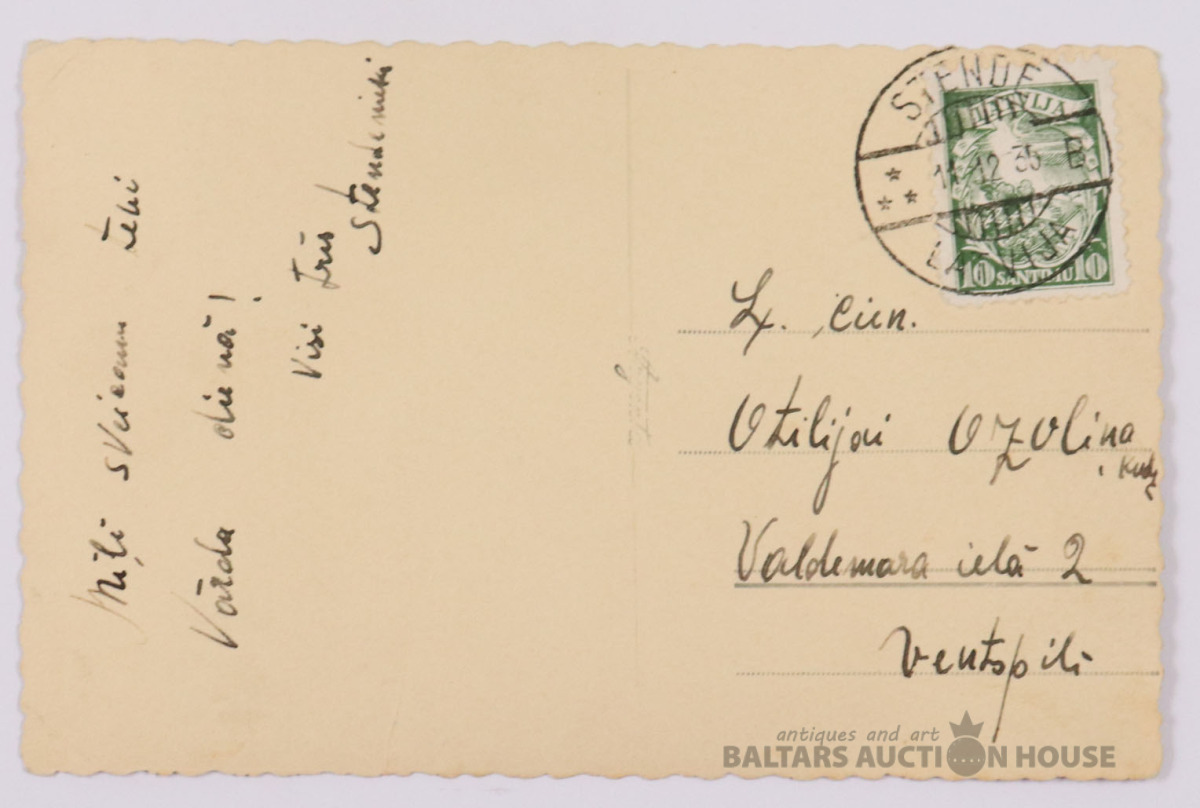 Mīļi sveicam tevi
Vārda dienā!
Visi trīs
Stendenieki
STENDE
LATVIJA
12 35 B
LATVIJA
10 SANTIMU 10
Lr. cien.
Otilijai Ozoliņa
Valdemara ielā 2
Ventspilī
antiques and art
BALTARS AUCTION HOUSE